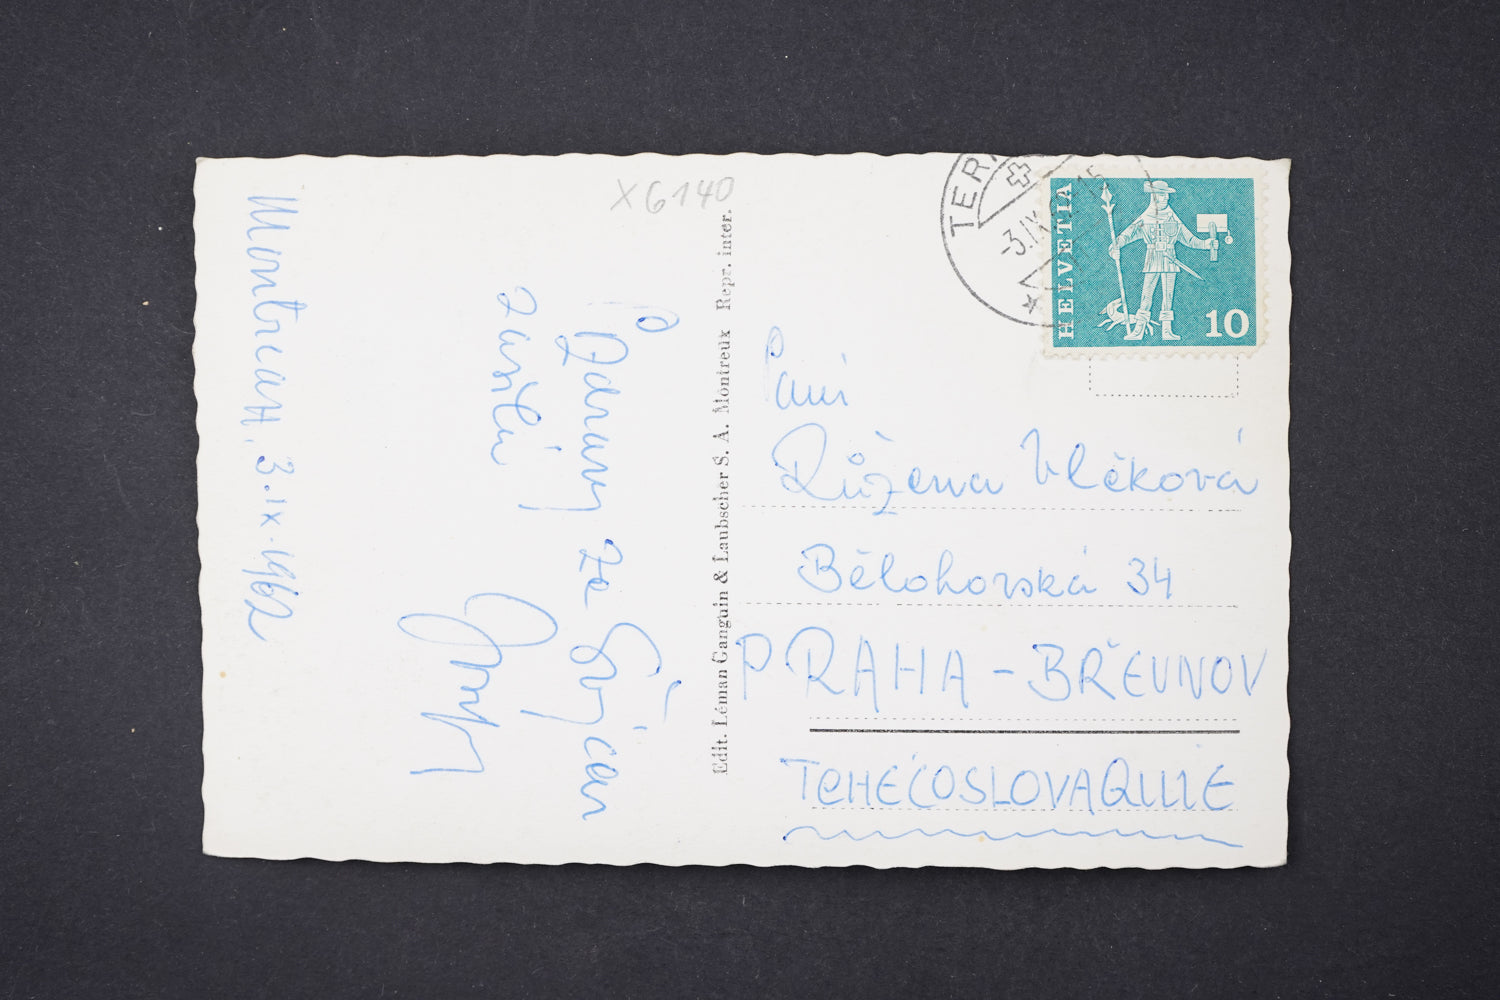 X6140
Montreux, 3.IX.1962
Pozdravy ze Švýcar
zasílá
Edit. Léman Ganguin & Laubscher S. A. Montreux Repr. inter.
TER
-3.IX
HELVETIA
10
Paní
Růžena Vlčková
Bělohorská 34
PRAHA - BŘEVNOV
TCHÉCOSLOVAQUIE